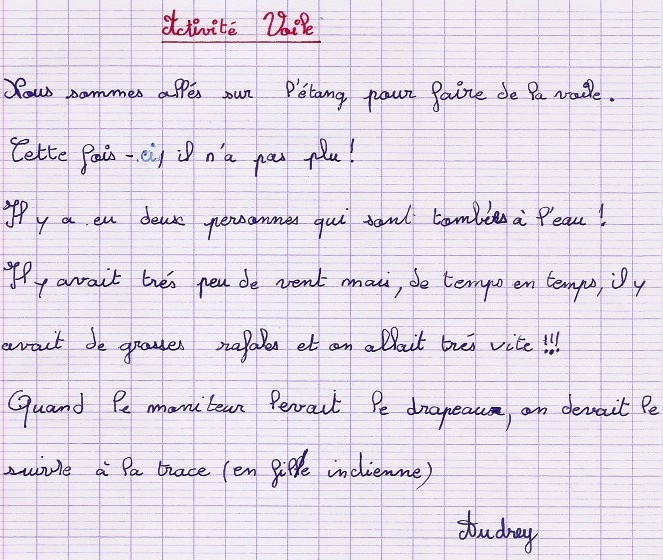 Activité Voile
Nous sommes allés sur l'étang pour faire de la voile.
Cette fois-ci, il n'a pas plu !
Il y a eu deux personnes qui sont tombés à l'eau !
Il y avait trés peu de vent mais, de temps en temps, il y
avait de grosses rafales et on allait trés vite !!!
Quand le moniteur levait le drapeau, on devait le
suivre à la trace (en file indienne)
Audrey